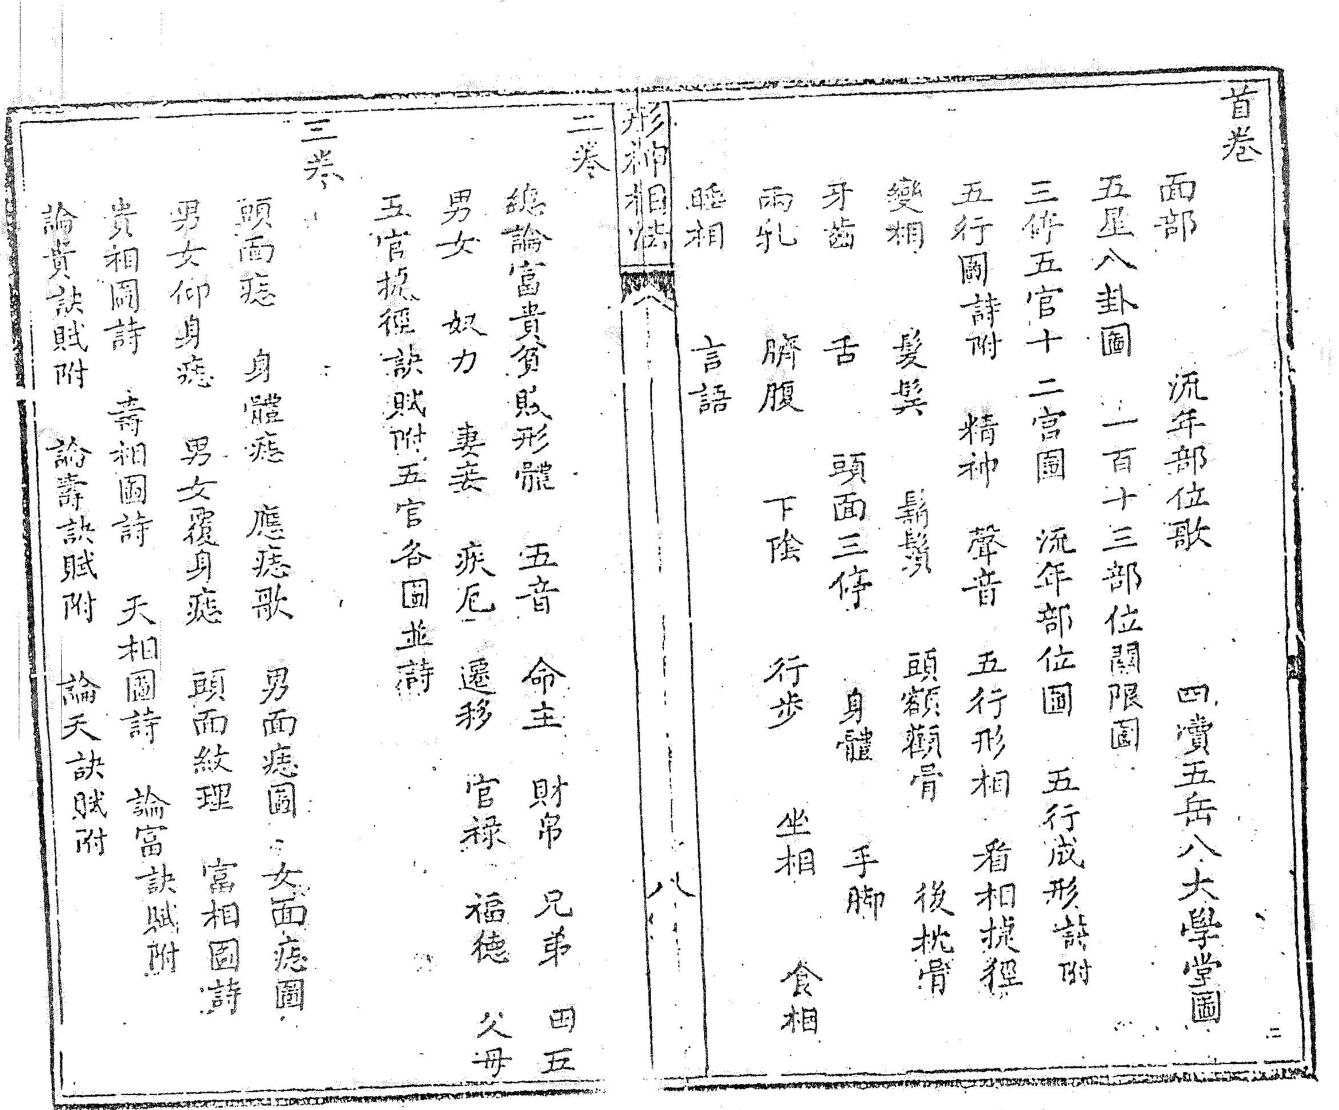 首卷
面部 流年部位歌 四瀆五岳八大學堂圖
五星八卦圖 一百十三部位關限圖
三停五官十二宮圖 流年部位圖 五行成形詩附
五行圖詩附 精神 聲音 五行形相 看相捷徑
變相 髮鬂 鬍鬚 頭額顴骨 後枕骨
牙齒 舌 頭面三停 身體 手脚
兩乳 臍腹 下陰 行步 坐相 食相
睡相 言語
形神相法
八
二卷
總論富貴貧賤形體 五音 命主 財帛 兄弟 田五
男女 奴力 妻妾 疾厄 遷移 官祿 福德 父母
五官捷徑訣賦附五官各圖並詩
三卷
頭面痣 身體痣 應痣歌 男面痣圖 女面痣圖
男女仰身痣 男女覆身痣 頭面紋理 富相圖詩
貴相圖詩 壽相圖詩 夭相圖詩 論富訣賦附
論貴訣賦附 論壽訣賦附 論夭訣賦附